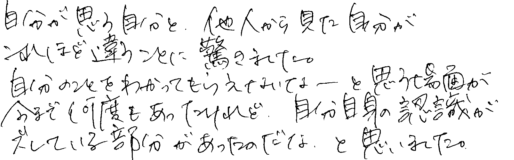 自分が思う自分と、他人から見た自分が
これほど違うことに驚きました。
自分のことをわかってもらえないなーと思う場面が
今まで何度もあったけれど、自分自身の認識が
ズレている部分があったのだな、と思いました。